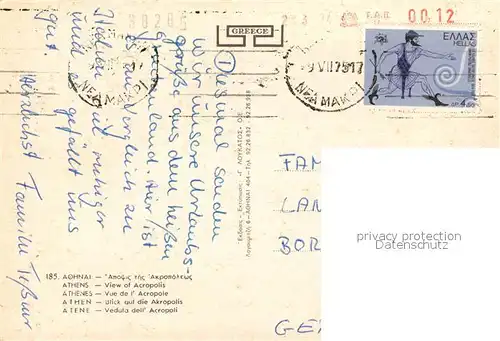 GREECE
00.12
ΕΛΛΑΣ
HELLAS
9 VII 75 17
ΝΕΑ ΜΑΚΡΗ
① Diesmal senden
wir unsere Urlaubs-
grüße aus dem heißen
Griechenland. Hier ist
es im Vergleich zu
Italien viel ruhiger
und es gefällt uns
gut.
Herzlichst Familie
FAM
LAN
BOR
GE
privacy protection
Datenschutz
185. ΑΘΗΝΑΙ — Ἄποψις τῆς Ἀκροπόλεως
ATHENS — View of Acropolis
ATHENES — Vue de l' Acropole
ATHEN — Blick auf die Akropolis
ATENE — Veduta dell' Acropoli